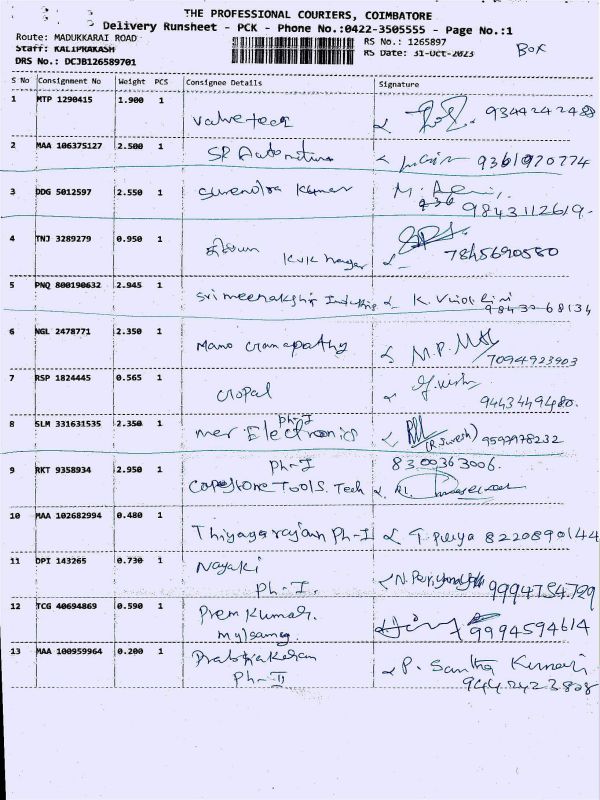 THE PROFESSIONAL COURIERS, COIMBATORE
Delivery Runsheet - PCK - Phone No.:0422-3505555 - Page No.:1
Route: MADUKKARAI ROAD
RS No.: 1265897
Staff: KALIPRAKASH
RS Date: 31-Oct-2023
BOX
DRS No.: DCJB126589701
S No Consignment No Weight PCS Consignee Details Signature
1 MTP 1290415 1.900 1 Valvetech 9344242488
2 MAA 106375127 2.500 1 SR 9361970774
3 DDG 5012597 2.550 1 Surendra Kumar M. 9843112619
4 TNJ 3289279 0.950 1 KVK Nagar 7845690580
5 PNQ 800190632 2.945 1 Sri meenakshi K. 98430 68134
6 NGL 2478771 2.350 1 Mano M.P.
7094923903
7 RSP 1824445 0.565 1 Gopal
9443449480.
8 SLM 331631535 2.350 1 Ph-I
mer Electronics (R. Suresh) 9597978232
9 RKT 9358934 2.950 1 Ph-I 8300363006.
Capestone Tools. Tech
10 MAA 102682994 0.480 1 Thiyagarajan Ph-I T. Priya 8220890144
11 DPI 143265 0.730 1 Nayaki
Ph-I. N. 9994754729
12 TCG 40694869 0.590 1 Prem Kumar. 9994594614
13 MAA 100959964 0.200 1 Prabhakaran P. Santha Kumari
Ph-II 9442423808